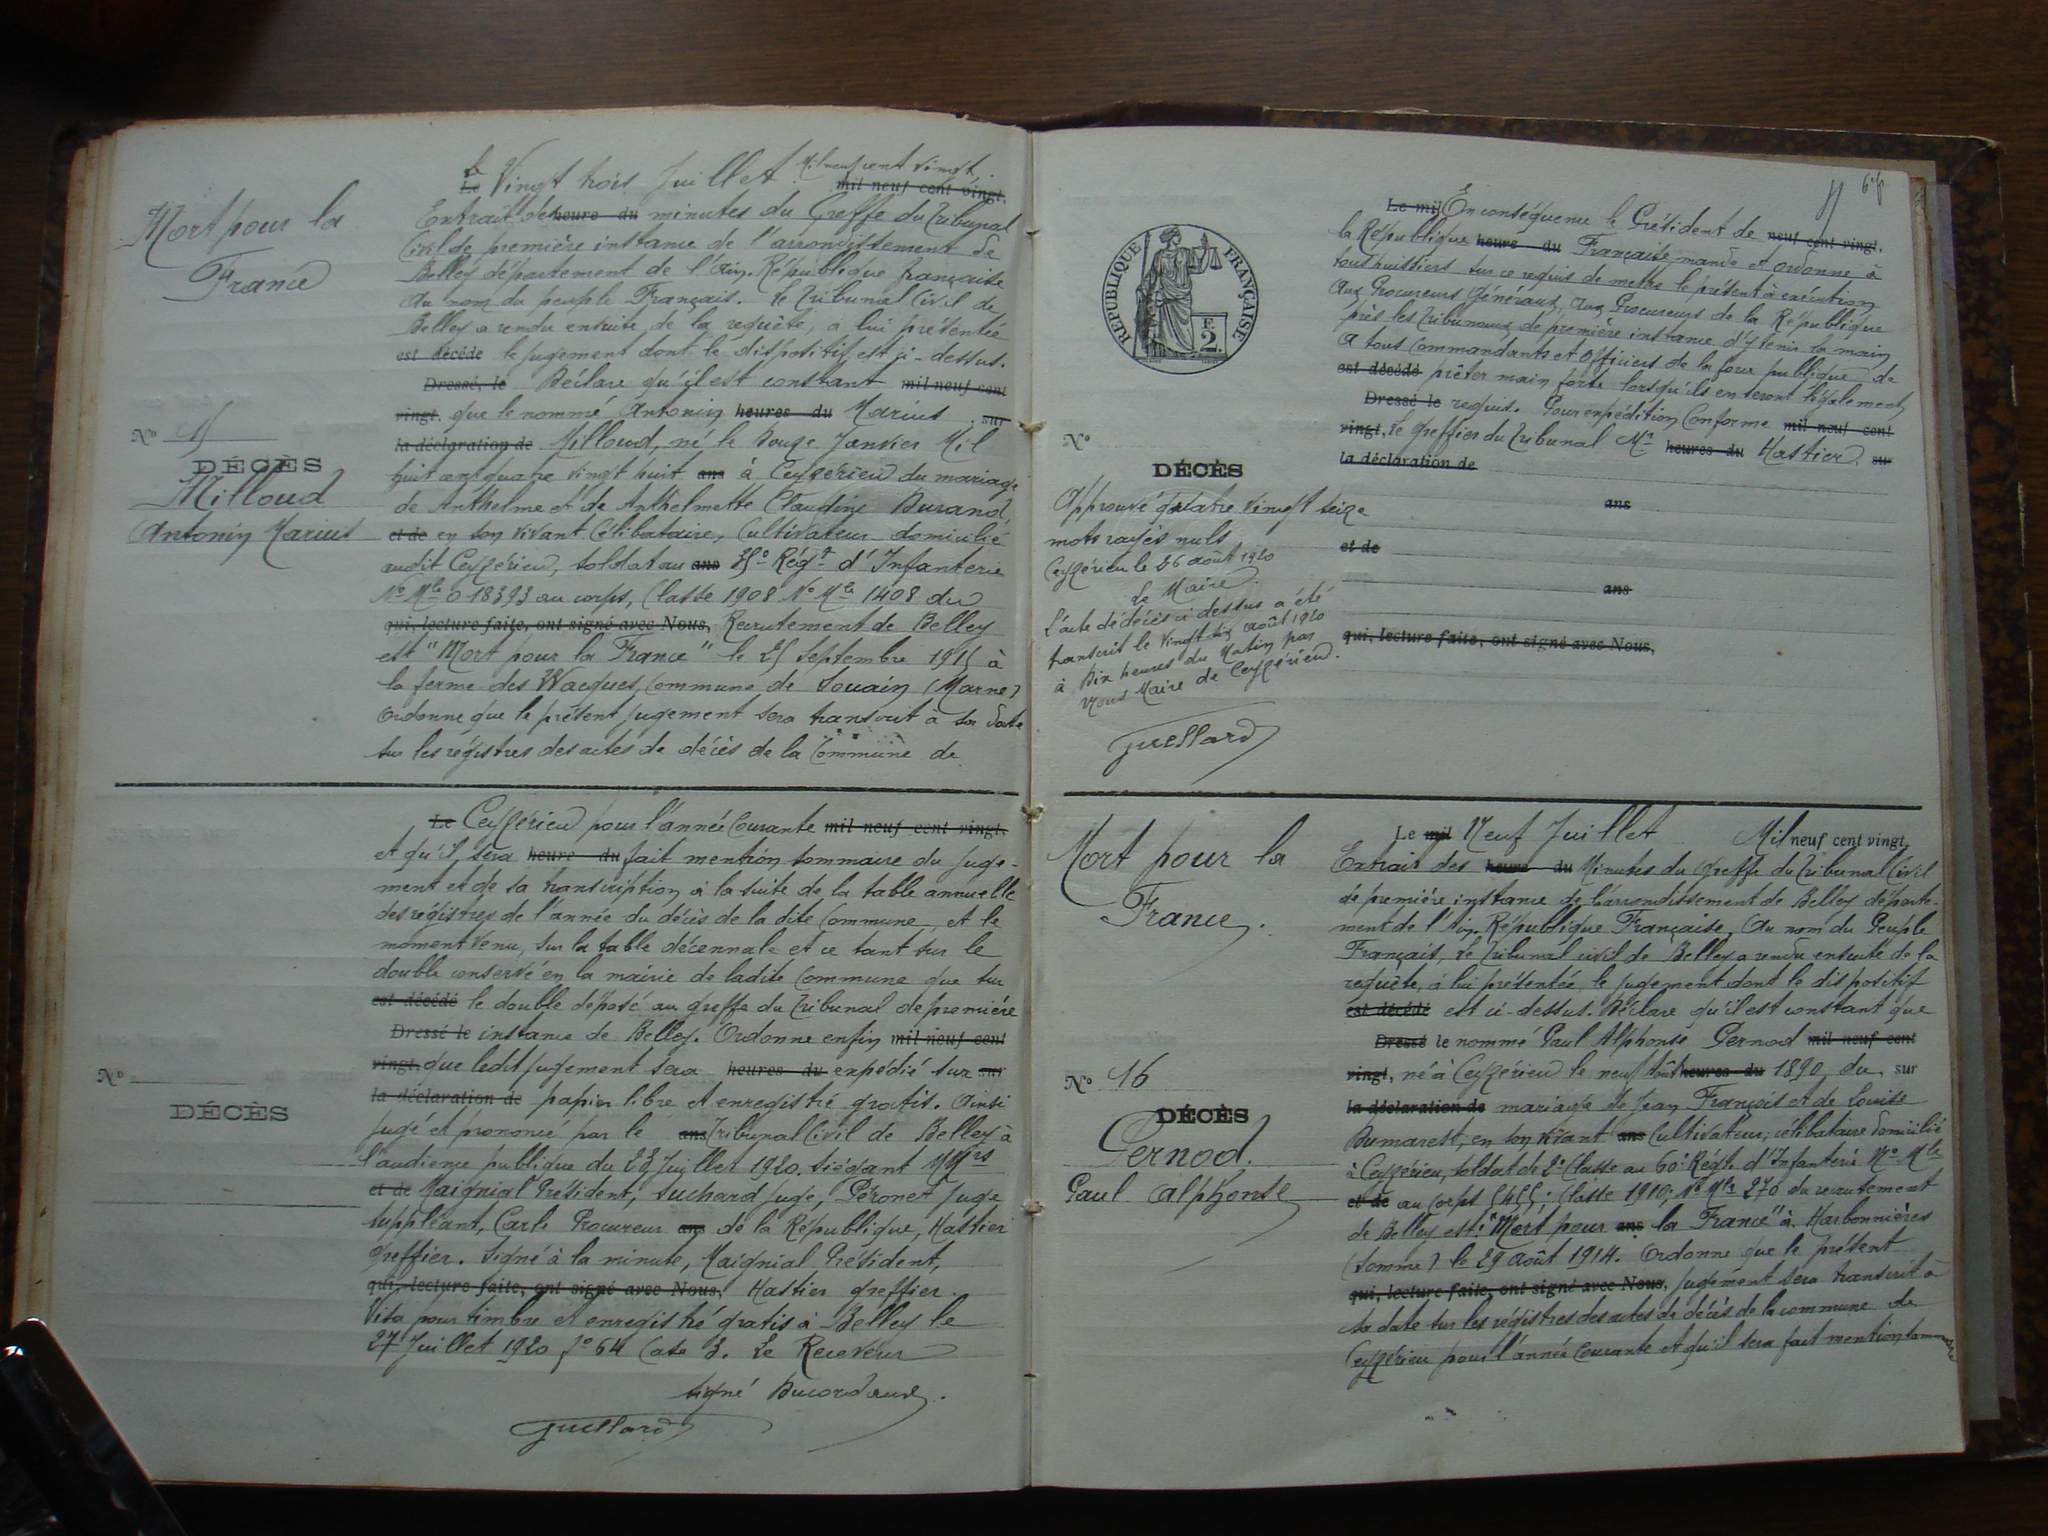 Mort pour la
France
Nº 15
DÉCÈS
Milloud
Antonin Marius
Le Vingt trois Juillet Mil neuf cent vingt
mil neuf cent vingt,
Extrait des heure du minutes du Greffe du Tribunal
Civil de première instance de l'arrondissement de
Belley département de l'Ain. République française
Au nom du peuple Français. Le Tribunal Civil de
Belley a rendu ensuite de la requête, à lui présentée
est décédé le jugement dont le dispositif est ci-dessus.
Dressé, le Déclare qu'il est constant mil neuf cent
vingt, que le nommé Antonin heures du Marius sur
la déclaration de Milloud, né le Douze Janvier Mil
huit cent quatre vingt huit ans à Ceyzérieu du mariage
de Anthelme et de Anthelmette Claudine Durand,
et de en son vivant Célibataire, Cultivateur domicilié
audit Ceyzérieu, soldat au ans 35e Régt d'Infanterie
Nº Mle 018393 au corps, Classe 1908 Nº Mle 1408 du
qui, lecture faite, ont signé avec Nous, Recrutement de Belley
est "Mort pour la France" le 25 septembre 1915 à
la ferme des Wacques, Commune de Souain (Marne)
Ordonne que le présent jugement sera transcrit à sa date
sur les régistres des actes de décès de la Commune de
Nº
DÉCÈS
Le Ceyzérieu pour l'année Courante mil neuf cent vingt,
et qu'il sera heure du fait mention sommaire du juge-
ment et de sa transcription à la suite de la table annuelle
des régistres de l'année du décès de la dite Commune, et le
moment venu, sur la table décennale et ce tant sur le
double conservé en la mairie de ladite Commune que sur
est décédé le double déposé au greffe du Tribunal de première
Dressé le instance de Belley. Ordonne enfin mil neuf cent
vingt, que ledit jugement sera heures du expédié sur sur
la déclaration de papier libre et enregistré gratis. Ainsi
jugé et prononcé par le ans Tribunal Civil de Belley à
l'audience publique du 23 Juillet 1920. Siégeant MMrs
et de Maignial Président, Suchard Juge, Péronet Juge
suppléant, Carle Procureur ans de la République, Hastier
greffier. Signé à la minute, Maignial Président,
qui, lecture faite, ont signé avec Nous, Hastier greffier.
Visa pour timbre et enregistré gratis à Belley le
27 Juillet 1920 fº 64 Case 3. Le Receveur
signé
Guellard
RÉPUBLIQUE FRANÇAISE
F.
2.
Nº
DÉCÈS
Approuvé quatre vingt seize
mots rayés nuls
Ceyzérieu le 26 août 1920
Le Maire
L'acte de décès ci dessus a été
transcrit le vingt six août 1920
à Dix heures du Matin par
Nous Maire de Ceyzérieu.
Guellard
Le mil En conséquence le Président de neuf cent vingt,
la République heure du Française mande et ordonne à
tous huissiers sur ce requis de mettre le présent à exécution
Aux Procureurs Généraux, aux Procureurs de la République
près les Tribunaux de première instance d'y tenir la main
A tous Commandants et Officiers de la force publique de
est décédé prêter main forte lorsqu'ils en seront légalement
Dressé le requis. Pour expédition Conforme mil neuf cent
vingt, Le Greffier du Tribunal Mr heures du Hastier. sur
la déclaration de
ans
et de
ans
qui, lecture faite, ont signé avec Nous,
Mort pour la
France.
Nº 16
DÉCÈS
Pernod.
Paul Alphonse
Le mil Neuf Juillet Mil neuf cent vingt,
Extrait des heure du Minutes du Greffe du Tribunal Civil
de première instance de l'arrondissement de Belley départe-
ment de l'Ain. République Française, Au nom du Peuple
Français, Le Tribunal civil de Belley a rendu ensuite de la
requête, à lui présentée, le jugement dont le dispositif
est décédé est ci-dessus. Déclare qu'il est constant que
Dressé le nommé Paul Alphonse Pernod mil neuf cent
vingt, né à Ceyzérieu le neuf Août heures du 1890, du sur
la déclaration de mariage de Jean François et de Louise
Dumarest, en son vivant ans Cultivateur, célibataire domicilié
à Ceyzérieu, soldat de 2e Classe au 60e Régt d'Infanterie Nº Mle
et de au Corps 5455; Classe 1910; Nº Mle 270 du recrutement
de Belley est "Mort pour ans la France" à Harbonnières
(Somme) le 29 Août 1914. Ordonne que le présent
qui, lecture faite, ont signé avec Nous, jugement sera transcrit à
sa date sur les régistres des actes de décès de la commune de
Ceyzérieu pour l'année Courante et qu'il sera fait mention sommaire